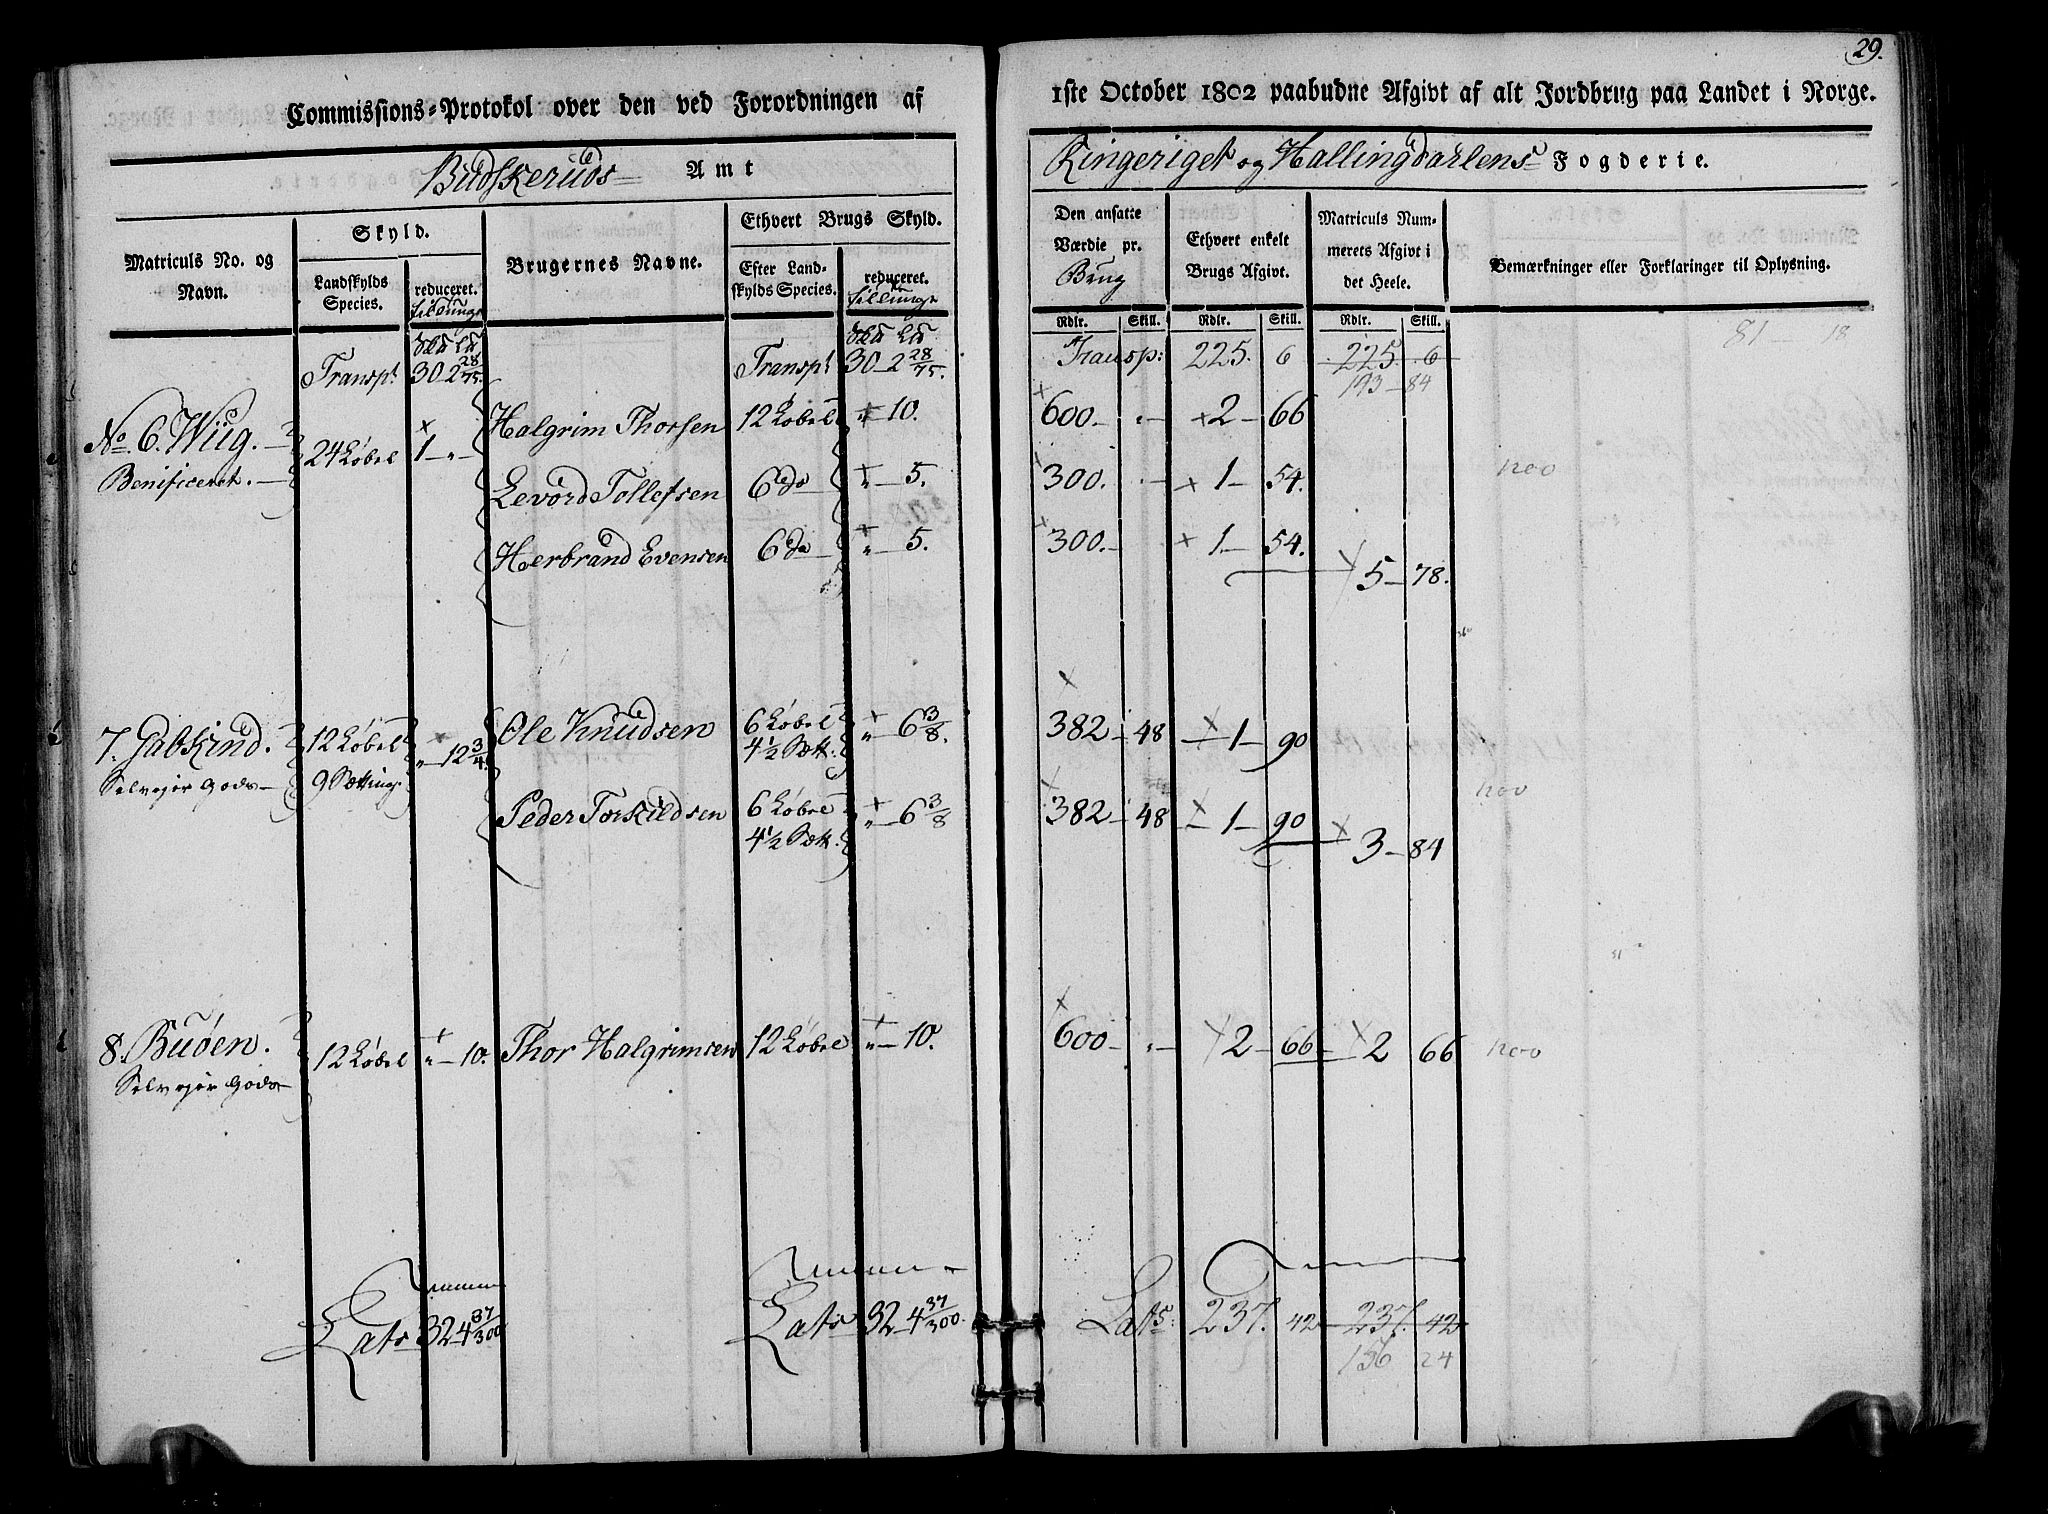 29.
Commissions-Protokol over den ved Forordningen af 1ste October 1802 paabudne Afgivt af alt Jordbrug paa Landet i Norge.
Budskeruds Amt Ringeriget og Hallingdarlens Fogderie.
Matriculs No. og Navn.
Skyld.
Landskylds Species.
reduceret.
Brugernes Navne.
Ethvert Brugs Skyld.
Efter Landskylds Species.
reduceret.
Den ansatte Værdie pr. Brug
Ethvert enkelt Brugs Afgivt.
Matriculs Nummerets Afgivt i det Heele.
Bemærkninger eller Forklaringer til Oplysning.
Rdlr. Skill. Rdlr. Skill. Rdlr. Skill.
Transpt 30 2 28/75. Transpt 30 2 28/75. Transp: 225. 6 225. 6 81 18
193 84
No. 6. Wiig. 24 Løbel 1 " Halgrim Thorsen 12 Løbel " 10. 600. " 2 66
Benificeret. Levord Tollefsen 6 do " 5. 300. " 1 54.
Herbrand Evensen 6 do " 5. 300. 1 54. 5 78.
7. Gabkind. 12 Løbel " 12 3/4 Ole Knudsen 6 Løbel " 6 3/8. 382 48 1 90
Selvejer Gods 9 Sætting: 4 1/2 Sætt.
Peder Torkildsen 6 Løbel " 6 3/8 382 48 1 90 3 84
4 1/2 Sætt.
8. Buøen. 12 Løbel " 10. Thor Halgrimsen 12 Løbel " 10. 600 " 2 66 2 66
Selvejer Gods
Lats 32 4 37/300 Lats 32 4 37/300. Lats: 237. 42 237. 42
156 24